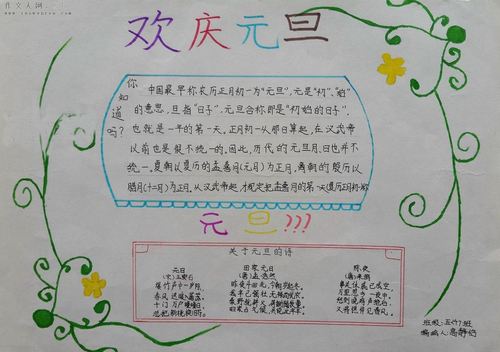 作文人网
欢庆元旦
你知道吗?
中国最早称农历正月初一为“元旦”,元是“初”、“始”
的意思,旦指“日子”,元旦合称即是“初始的日子”,
也就是一年的第一天。正月初一从那日算起,在汉武帝
以前也是很不统一的。因此,历代的元旦月、日也并不
统一。夏朝以夏历的孟喜月(元月)为正月,商朝的殷历以
腊月(十二月)为正月。从汉武帝起,才规定把孟喜月的第一天(夏历正月初一)称
元旦???
关于元旦的诗
元日
(宋)王安石
爆竹声中一岁除,
春风送暖入屠苏。
千门万户曈曈日,
总把新桃换旧符。
田家元日
(唐)孟浩然
昨夜斗回北,今朝岁起东。
我年已强仕,无禄尚忧农。
田家占气候,共说此年丰。
除夜
(唐)来鹄
事关休戚已成空,
万里相思一夜中。
愁到晓鸡声绝后,
又将憔悴见春风。
班级:五(7)班
编辑人: